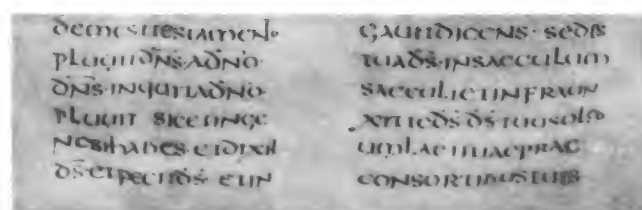 pluit dns · a dno ·
dns · inquit a dno ·
pluit sic et in ge
nesi habes · et dixit
ds et fecit ds · et in
dicens · sedis
tua ds · in saeculum
saeculi et infra un
xit te ds · ds tuus
um laetitiae prae
consortibus tuis